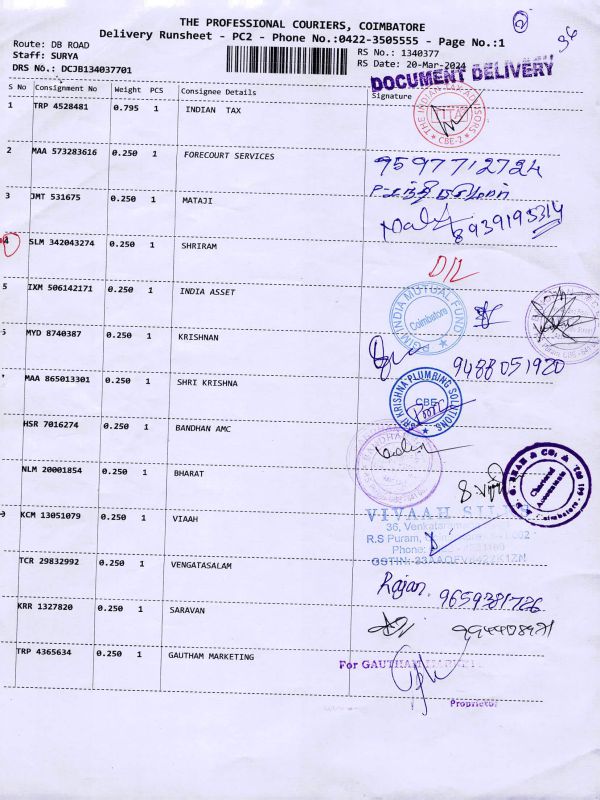 THE PROFESSIONAL COURIERS, COIMBATORE
Delivery Runsheet - PC2 - Phone No.:0422-3505555 - Page No.:1
Route: DB ROAD RS No.: 1340377
Staff: SURYA RS Date: 20-Mar-2024
DRS No.: DCJB134037701
DOCUMENT DELIVERY
2
36
S No Consignment No Weight PCS Consignee Details Signature
1 TRP 4528481 0.795 1 INDIAN TAX
CBE-2
2 MAA 573283616 0.250 1 FORECOURT SERVICES
9597712724
3 JMT 531675 0.250 1 MATAJI
8939195314
4 SLM 342043274 0.250 1 SHRIRAM
D/L
5 IXM 506142171 0.250 1 INDIA ASSET
PGIM INDIA MUTUAL FUND
Coimbatore
MYD 8740387 0.250 1 KRISHNAN
9488051920
MAA 865013301 0.250 1 SHRI KRISHNA
SRI KRISHNA PLUMBING SOLUTIONS
CBE
HSR 7016274 0.250 1 BANDHAN AMC
NLM 20001854 0.250 1 BHARAT
Chartered
Accountants
Coimbatore
KCM 13051079 0.250 1 VIAAH
VIVAAH SILKS
36, Venkatara
R.S Puram,
Phone:
GSTIN:
TCR 29832992 0.250 1 VENGATASALAM
Rajan 9659381726
KRR 1327820 0.250 1 SARAVAN
TRP 4365634 0.250 1 GAUTHAM MARKETING
For GAUTHAM MARKETI
Proprietor